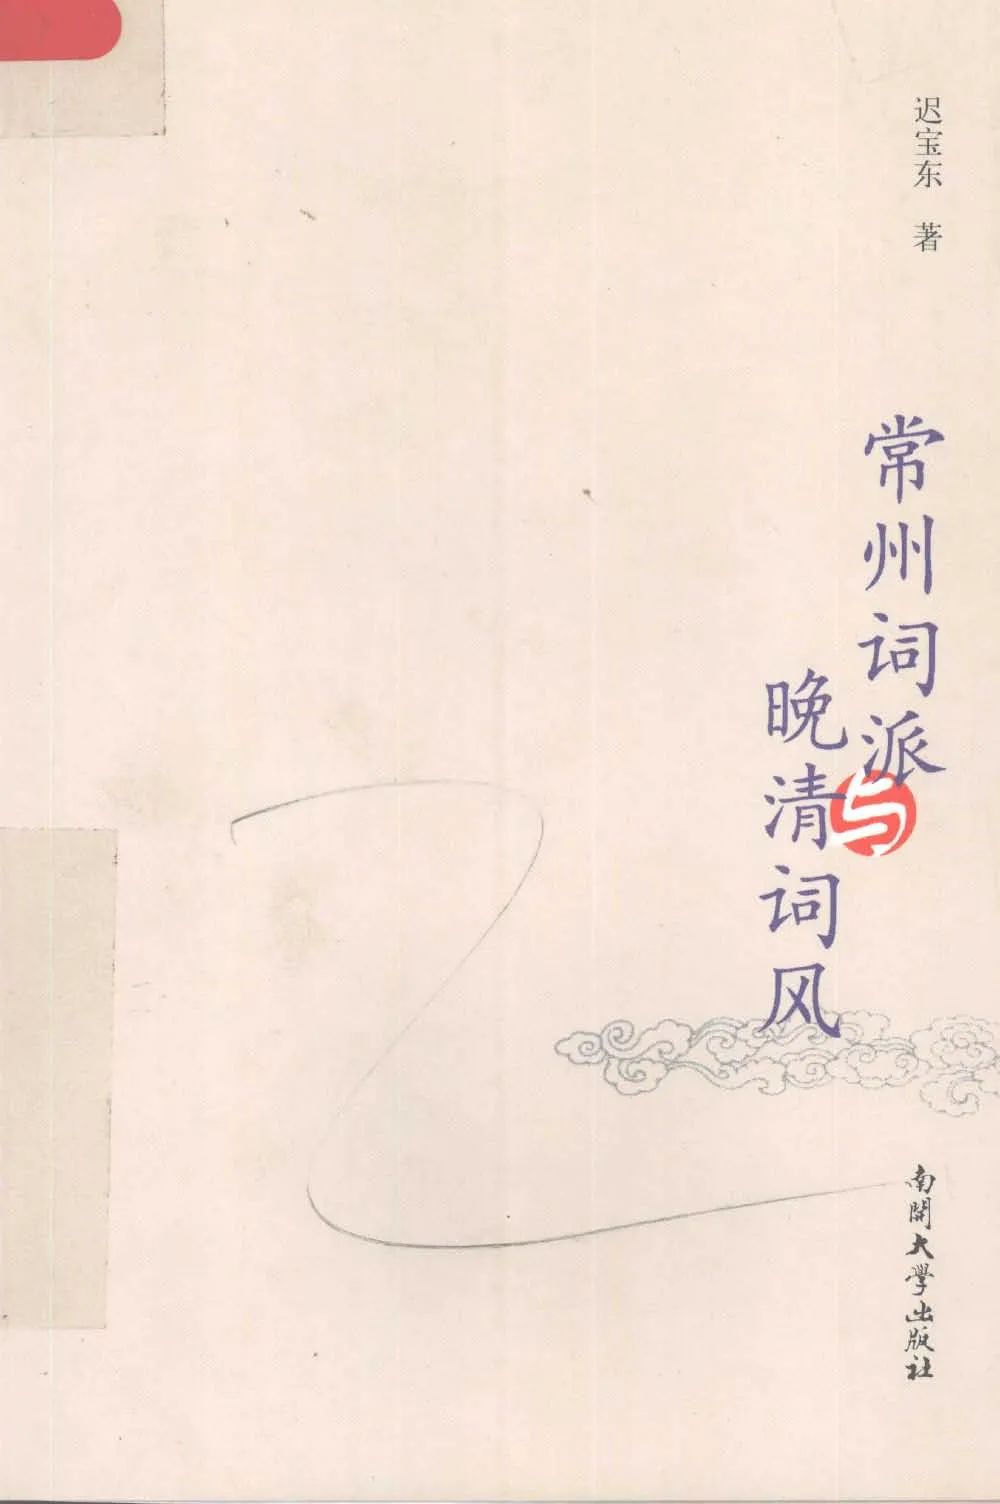 迟宝东 著
常州词派
与
晚清词风
南開大學出版社